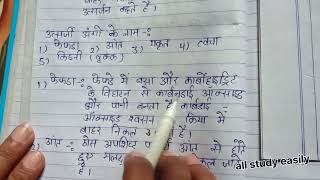 कहते है।
उत्सर्जी अंगो के नाम -:
1) फेफड़ा 2) आंत 3) यकृत 4) त्वचा
5) किडनी (वृक्क)
1) फेफड़ा -: फेफड़े में वसा और कार्बोहाइड्रेट
के विघटन से कार्बनडाई ऑक्साइड
और पानी बनता है। कार्बडाई -
ऑक्साइड श्वसन क्रिया में
बाहर निकल है।
2) आंत -: ठोस अपशिष्ट आंत से होते
हुए मल
है।
all study easily